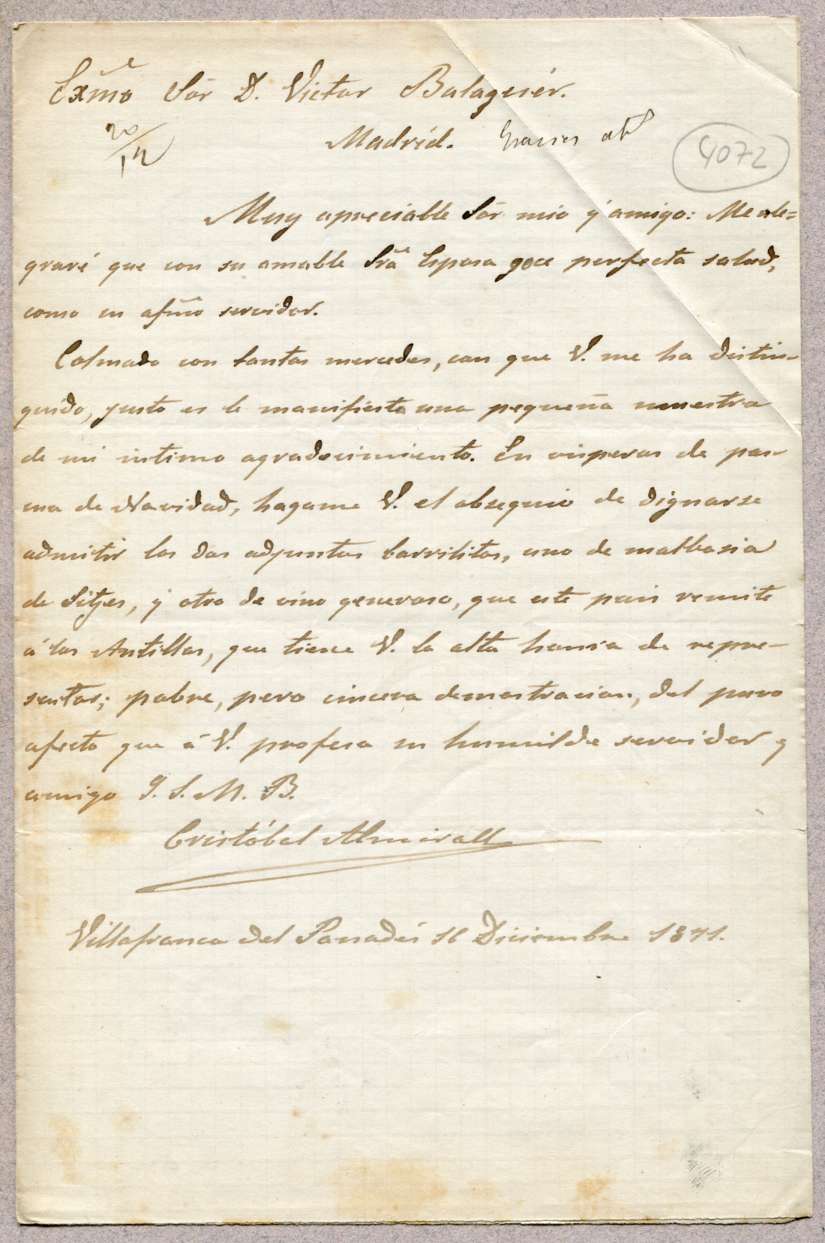 Exm̃o Sōr D. Victor Balaguér.
20/12
Madrid. Gracias
4072
Muy apreciable Sōr mio y amigo: Me ale=
graré que con su amable Srã Esposa goce perfecta salud,
como su afm̃o servidor.
Colmado con tantas mercedes, con que V. me ha distin-
guido, justo es le manifieste una pequeña muestra
de mi intimo agradecimiento. En visperas de pas-
cua de Navidad, hagame V. el obsequio de dignarse
admitir los dos adjuntos barrilitos, uno de malbasia
de Sitjes, y otro de vino generoso, que este pais remite
á las Antillas, que tiene V. la alta honra de repre-
sentar; pobre, pero sincera demostracion, del puro
afecto que á V. profesa su humilde servidor y
amigo Q. S. M. B.
Cristóbal Almirall
Villafranca del Panadés 16 Diciembre 1871.